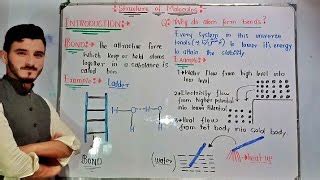 Structure of Molecules
INTRODUCTION:
BOND:- The attractive force
which keep or hold atoms
together in a substance is
called bon
Example:- Ladder
BOND
Q: Why do atom form bonds?
Every system in this universe
tends to lower it's energy
to attain the stability
Example:-
1 • Water flow from high level into
low level
2 • Electricity flow
from higher potential
into lower potential
3 • Heat flow
from hot body into cold body
(water)
heat up